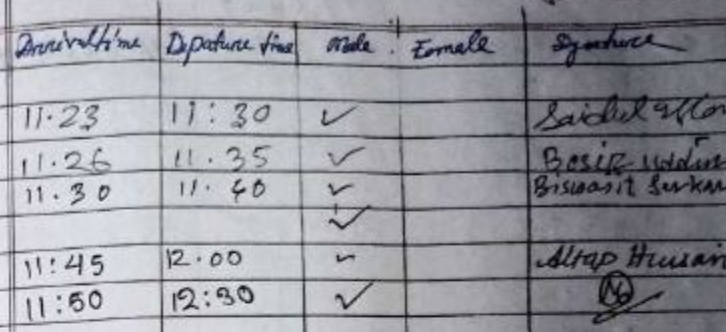 Arrival time Dpature time male Female Signature
11.23 11:30 ✓ Saidul
11.26 11.35 ✓ Besir Uddin
11.30 11.40 ✓ Biswasit Sarkar
✓
11:45 12.00 ✓ Altap Hussain
11:50 12:30 ✓